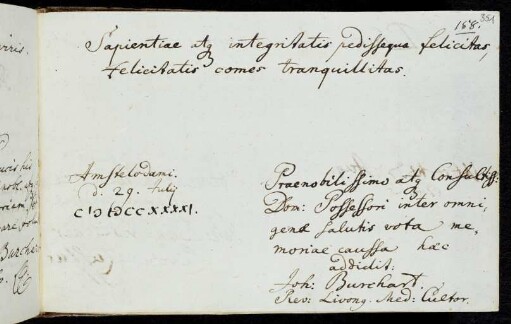 158.
351
Sapientiae atq integritatis pedissequa felicitas,
Felicitatis comes tranquillitas.
Amstelodami.
d. 29. July
CIↃIↃCCXXXXI.
Praenobilissimo atq Consultiss:
Dom: Possessori inter omni,
genae salutis vota me,
moriae caussa haec
addidit:
Joh: Burchart,
Rev: Livong. Med: Cultor.
viris.
Burchar